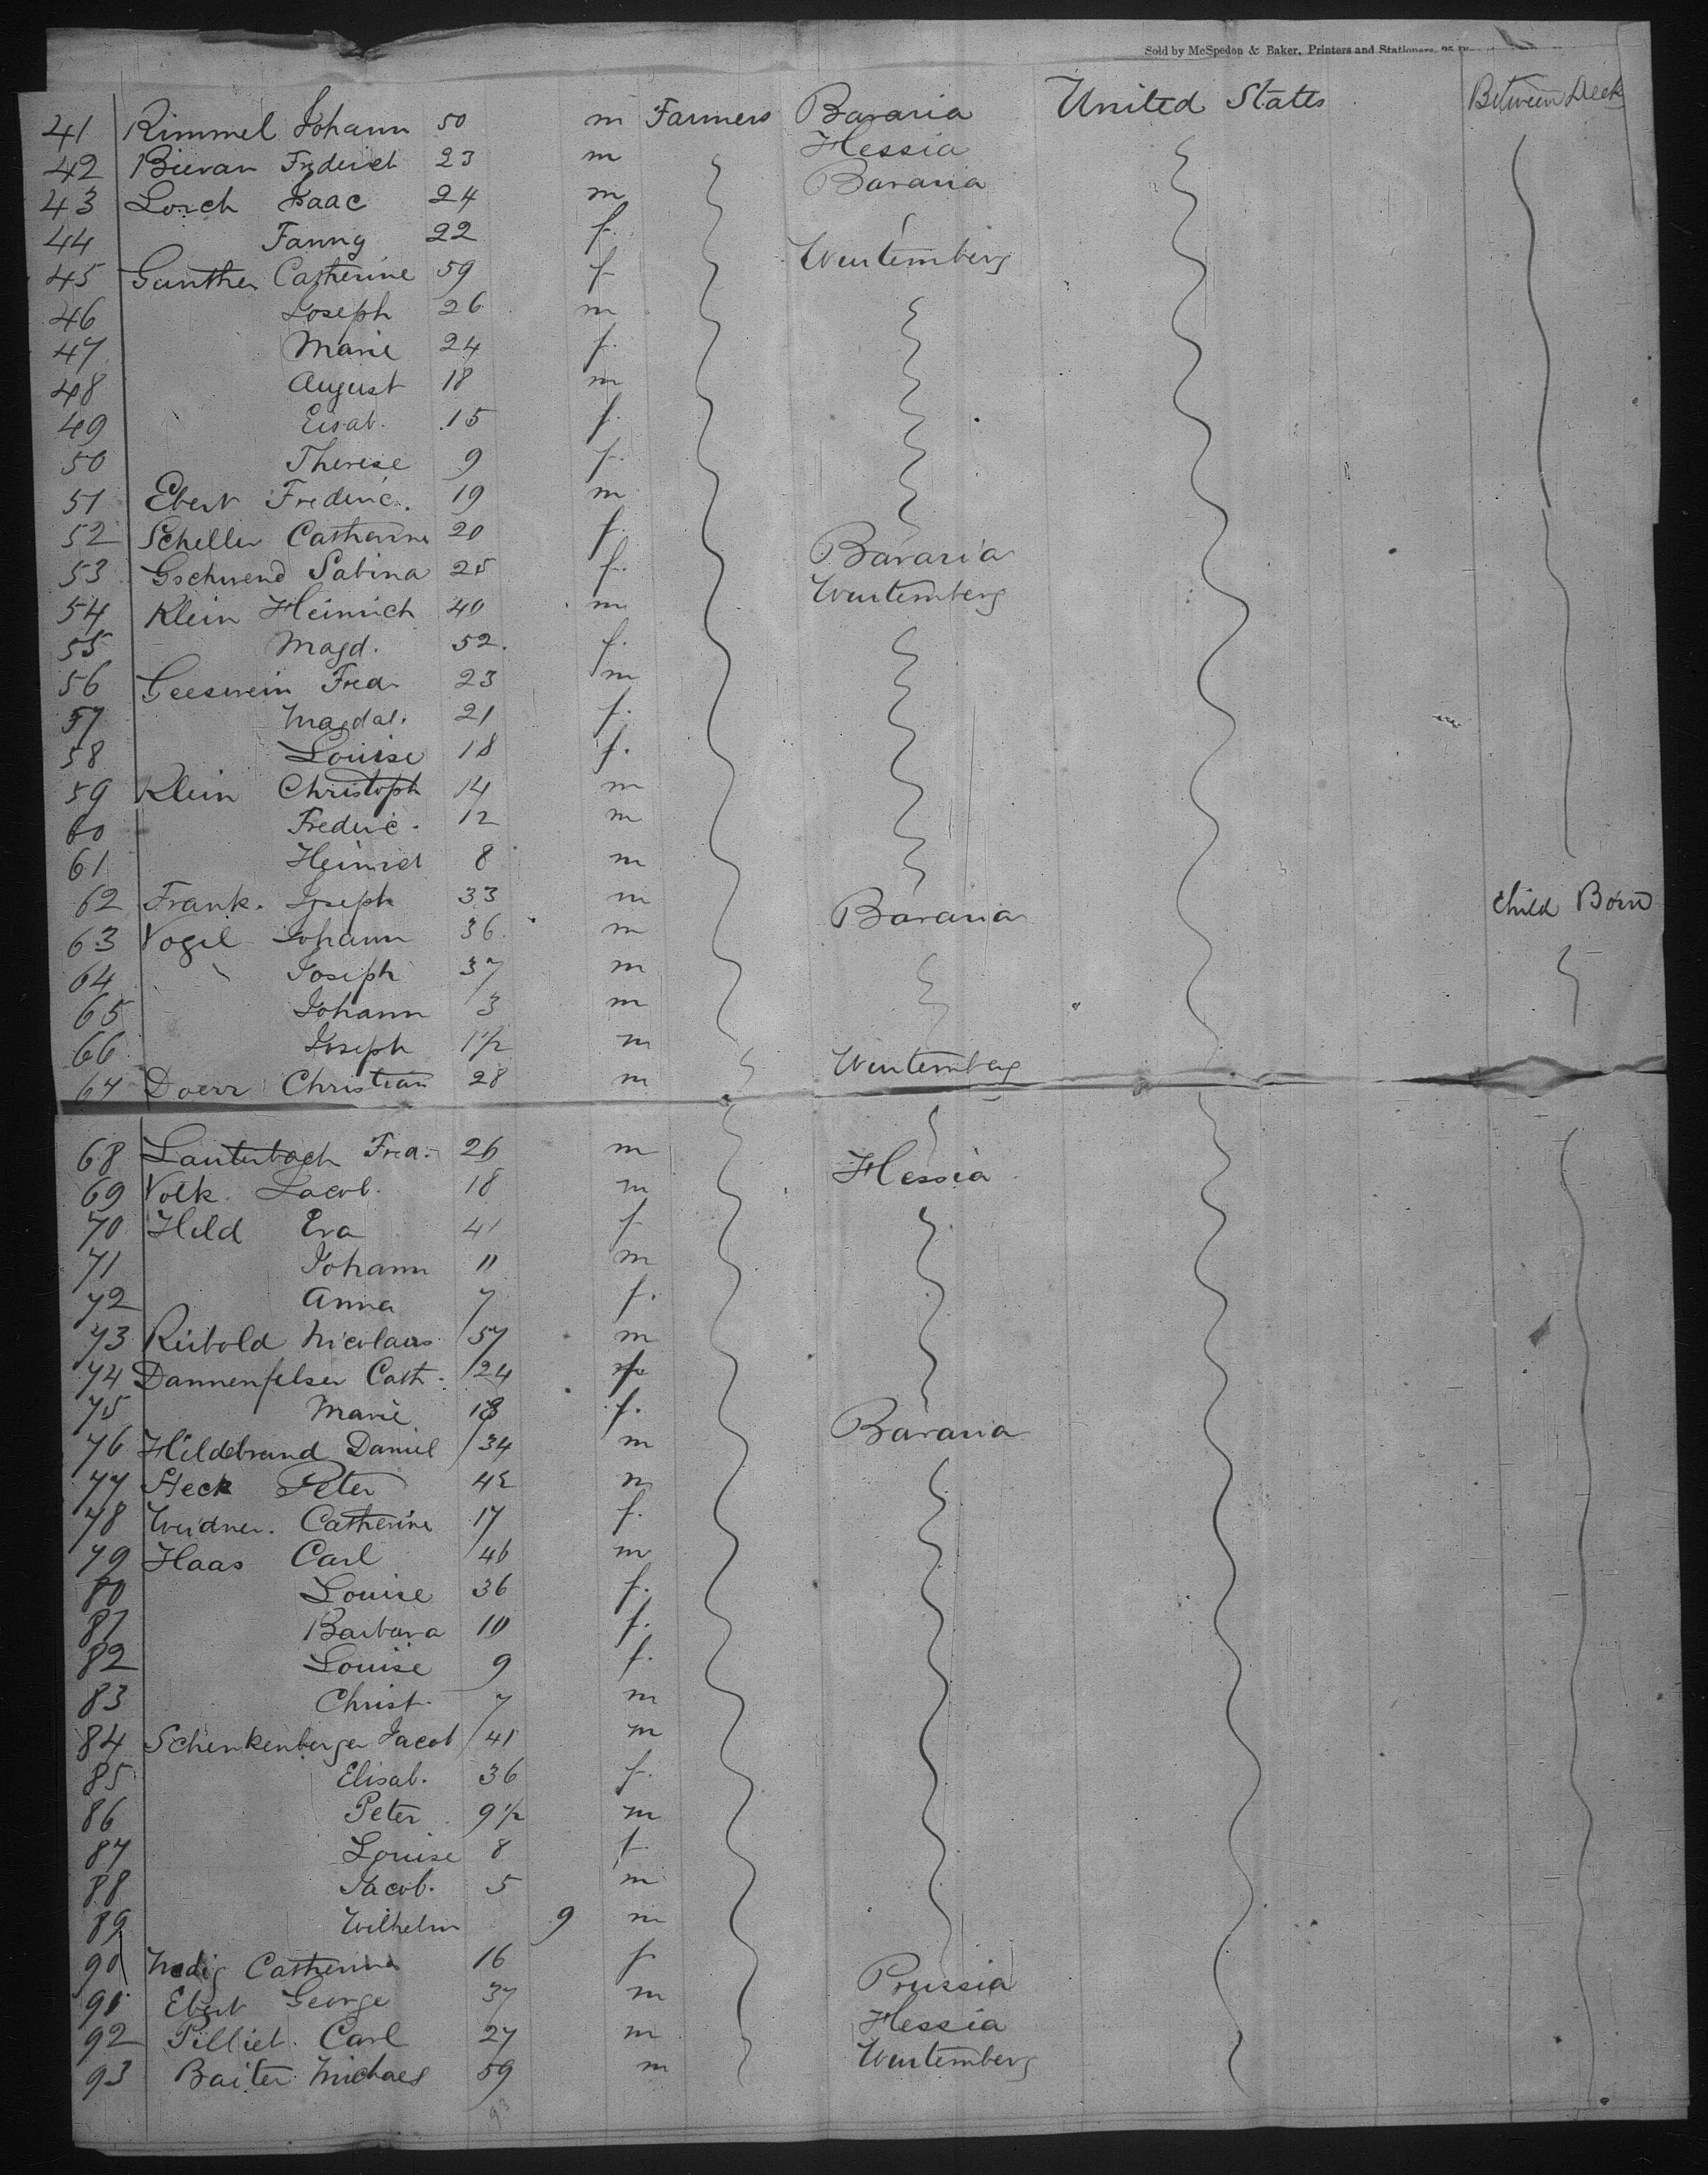 Sold by McSpedon & Baker, Printers and Stationers, 25
41 Rimmel Johann 50 m Farmers Bavaria United States Between Deck
42 Biervan Frederich 23 m Hessia
43 Lorch Isaac 24 m Bavaria
44 Fanny 22 f.
45 Gunther Catherine 59 f Wurtemberg
46 Joseph 26 m
47 Marie 24 f.
48 August 18 m
49 Eisab. 15 f.
50 Therese 9 f.
51 Ebert Frederic. 19 m
52 Scheller Catharine 20 f.
53 Gschwend Sabina 25 f. Bavaria
54 Klein Heinrich 40 m Wurtemberg
55 Magd. 52. f.
56 Geeswein Fred. 23 m
57 Magdal. 21 f.
58 Louise 18 f.
59 Klein Christoph 14 m
60 Frederic. 12 m
61 Heinrich 8 m
62 Frank. Joseph 33 m Bavaria Child Born
63 Vogel Johann 36 m
64 Joseph 37 m
65 Johann 3 m
66 Joseph 1 1/2 m
67 Doerr Christian 28 m Wurtemberg
68 Lauterbach Fred. 26 m
69 Volk. Jacob. 18 m Hessia
70 Hild Eva 41 f
71 Johann 11 m
72 Anna 7 f.
73 Reibold Nicolaus 57 m
74 Dannenfelser Cath. 24 f
75 Marie 18 f.
76 Hildebrand Daniel 34 m Bavaria
77 Steck Peter 42 m
78 Weidner. Catherine 17 f.
79 Haas Carl 46 m
80 Louise 36 f.
81 Barbara 10 f.
82 Louise 9 f.
83 Christ. 7 m
84 Schenkenberger Jacob 41 m
85 Elisab. 36 f.
86 Peter 9 1/2 m
87 Louise 8 f.
88 Jacob. 5 m
89 Wilhelm 9 m
90 Catherine 16 f
91 Ebert George 37 m Prussia
92 Pilliet. Carl 27 m Hessia
93 Baiter Michael 59 m Wurtemberg
93